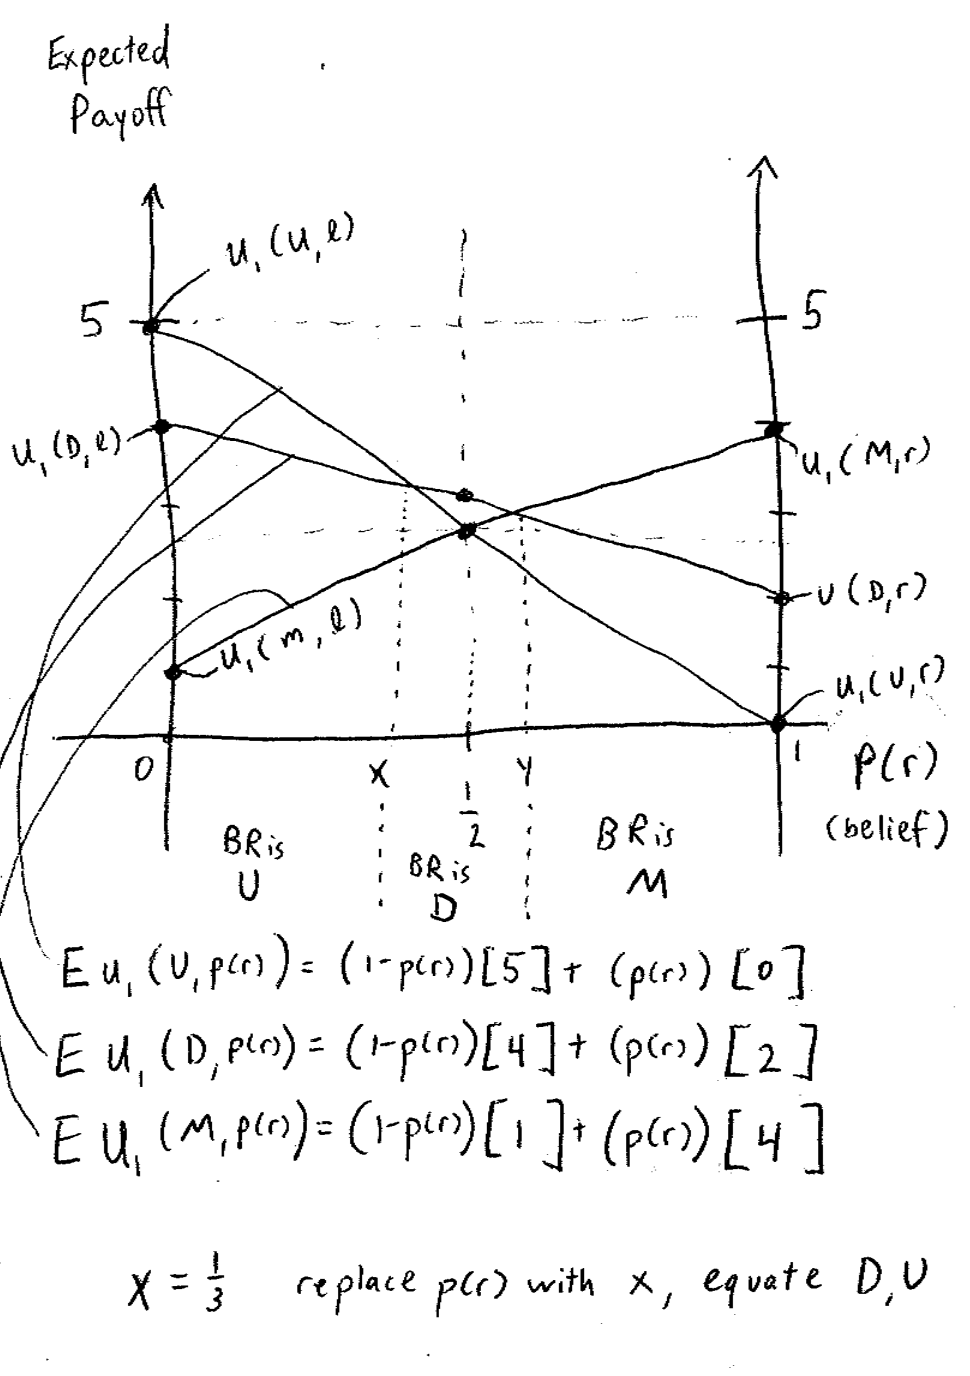 Expected
Payoff
u₁(U,l)
5
5
u₁(D,l)
u₁(M,r)
u(D,r)
u₁(m,l)
u₁(U,r)
0
X
1/2
Y
1
P(r)
(belief)
BR is
U
BR is
D
BR is
M
E u₁(U,p(r)) = (1-p(r))[5] + (p(r))[0]
E u₁(D,p(r)) = (1-p(r))[4] + (p(r))[2]
E u₁(M,p(r)) = (1-p(r))[1] + (p(r))[4]
X = 1/3 replace p(r) with x, equate D,U